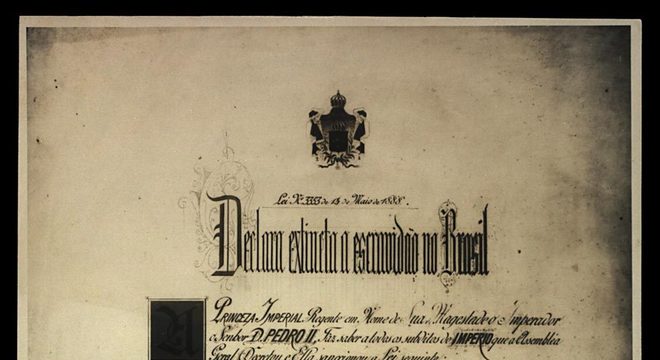 Lei Nº 3353 de 13 de Maio de 1888.
Declara extincta a escravidão no Brasil
A PRINCEZA IMPERIAL Regente em Nome de Sua Magestade o Imperador
o Senhor D. PEDRO II, Faz saber a todos os subditos do IMPERIO que a Assembléa
Geral Decretou e Ella sanccionou a Lei seguinte: